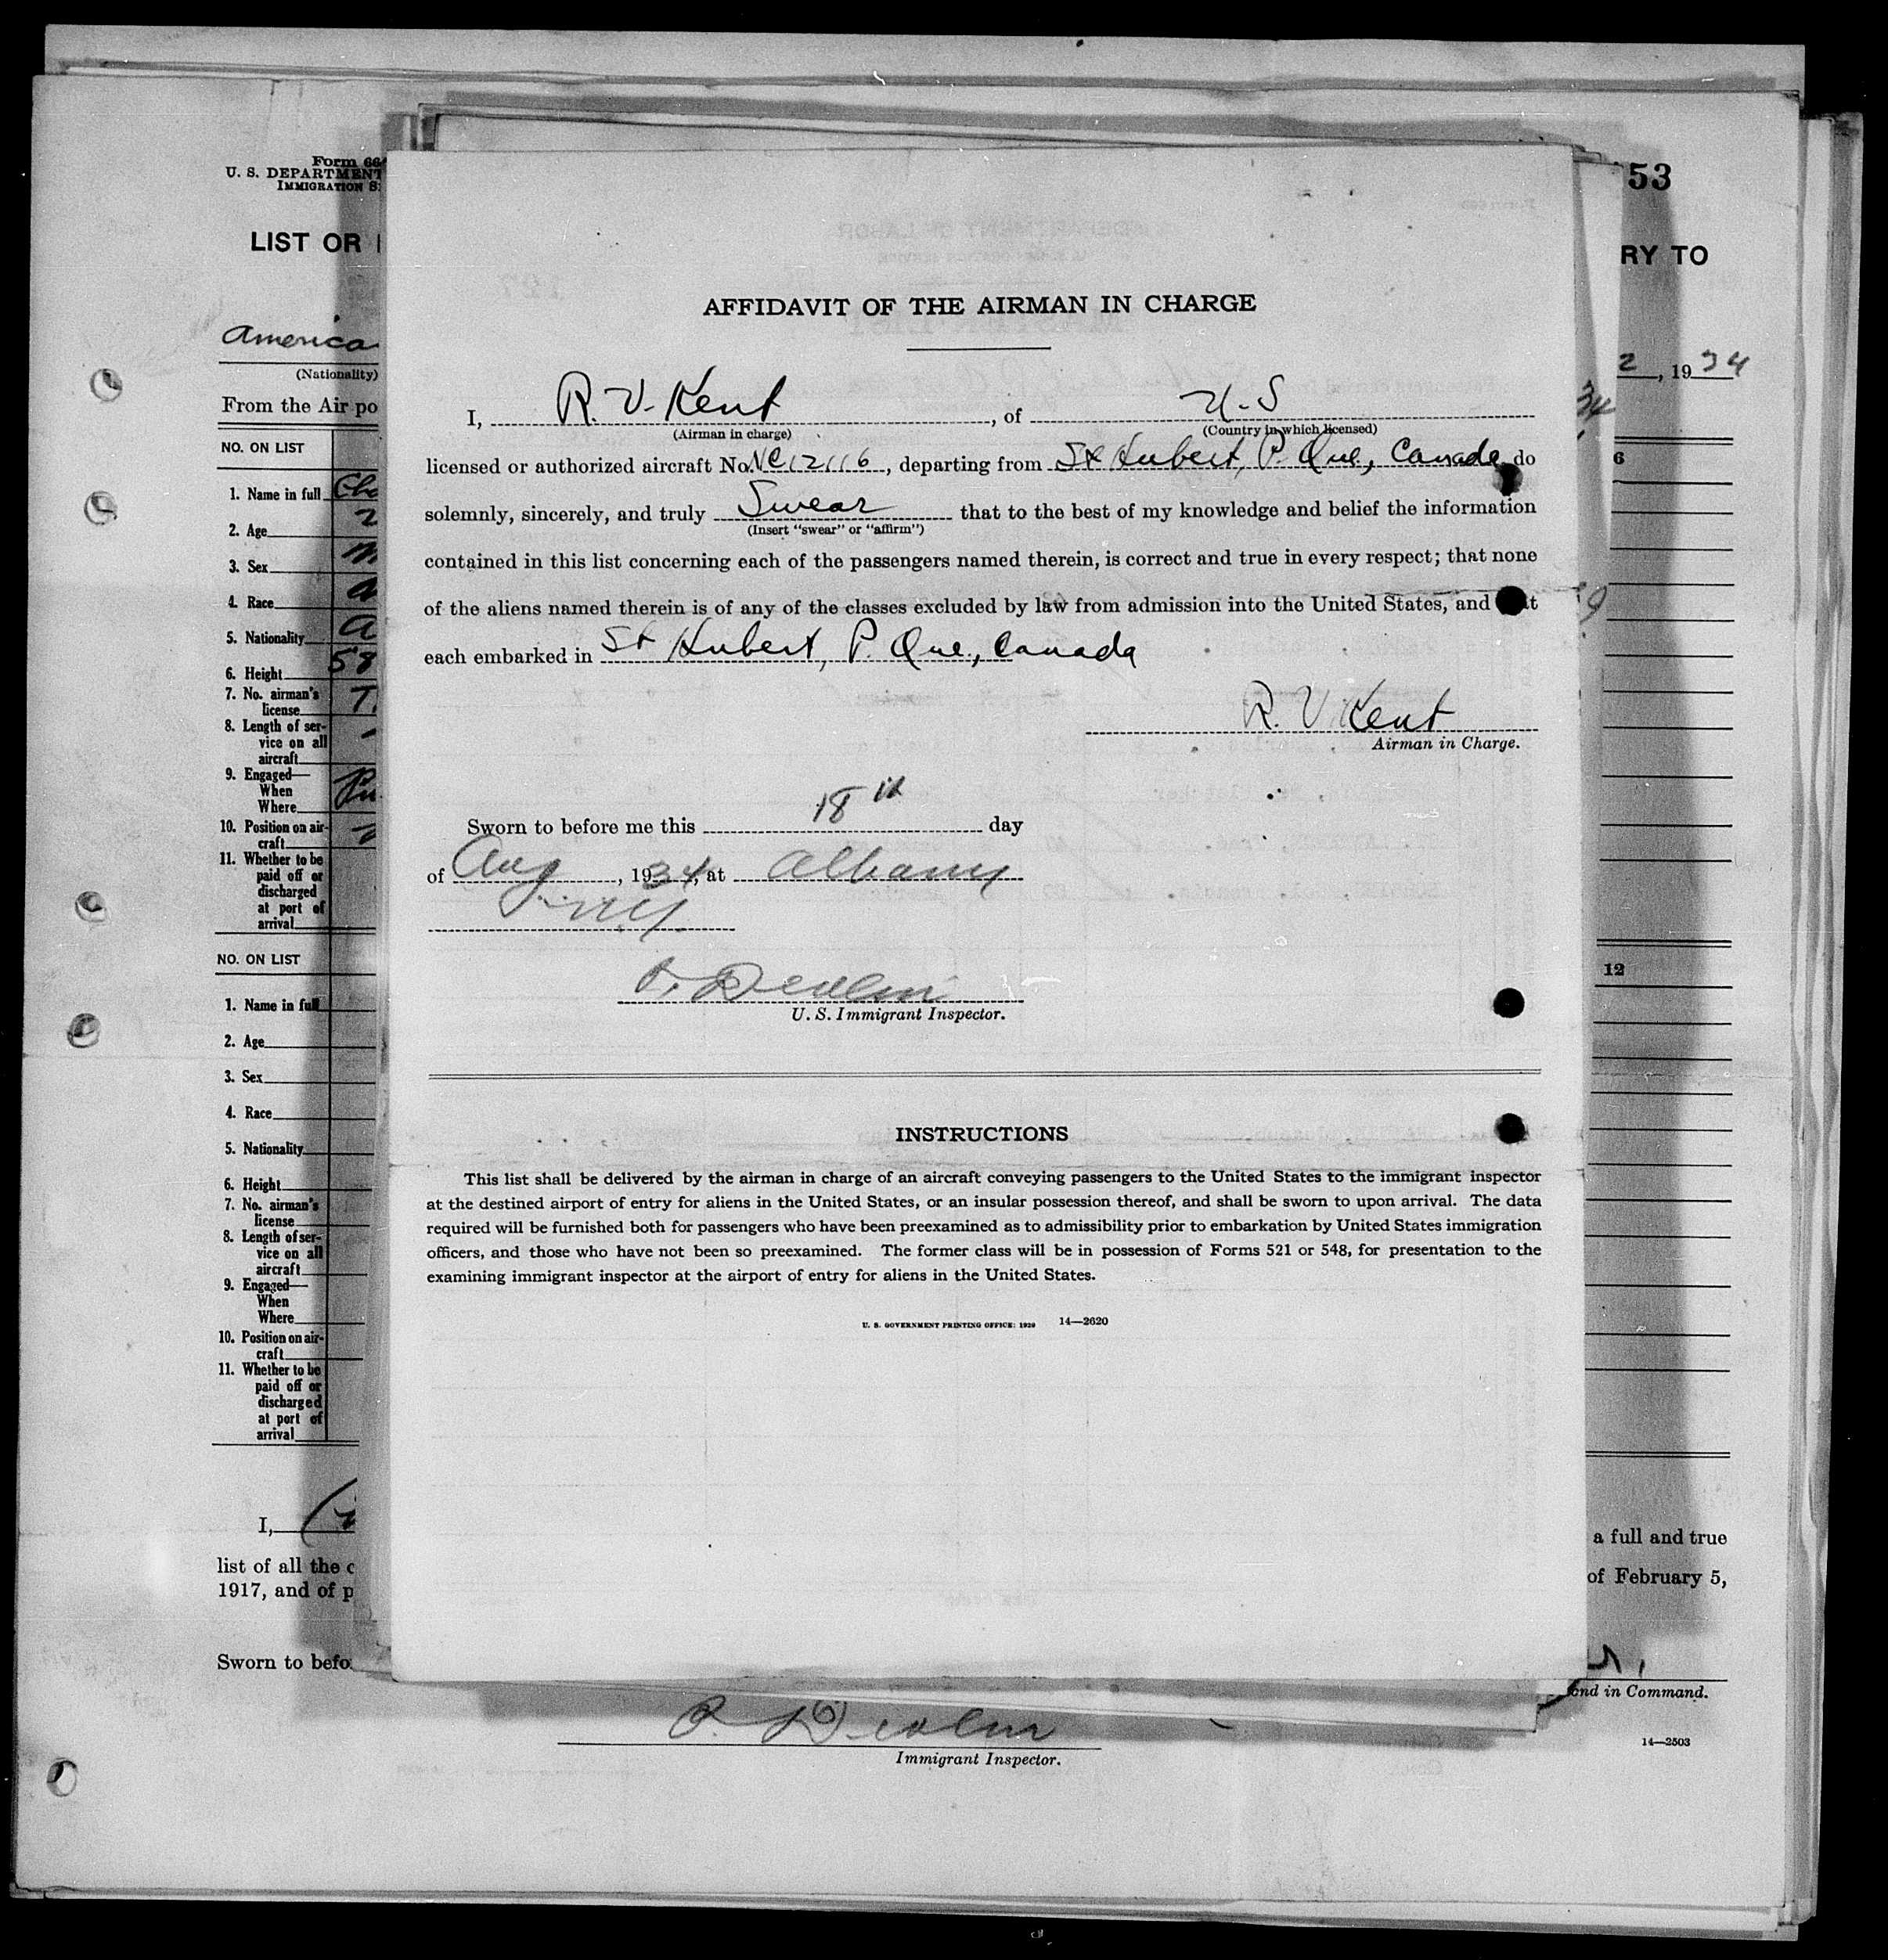 Form 66
U. S. DEPARTMENT
IMMIGRATION S
LIST OR
America
(Nationality)
From the Air po
NO. ON LIST
1. Name in full
2. Age
3. Sex
4. Race
5. Nationality
6. Height 58
7. No. airman's
license
8. Length of ser-
vice on all
aircraft
9. Engaged—
When
Where
10. Position on air-
craft
11. Whether to be
paid off or
discharged
at port of
arrival
NO. ON LIST
1. Name in full
2. Age
3. Sex
4. Race
5. Nationality
6. Height
7. No. airman's
license
8. Length of ser-
vice on all
aircraft
9. Engaged—
When
Where
10. Position on air-
craft
11. Whether to be
paid off or
discharged
at port of
arrival
I,
list of all the c
1917, and of p
Sworn to befo
AFFIDAVIT OF THE AIRMAN IN CHARGE
I, R. V. Kent, of U.S
(Airman in charge) (Country in which licensed)
licensed or authorized aircraft No. NC12116, departing from St Hubert, P. Que, Canada, do
solemnly, sincerely, and truly Swear that to the best of my knowledge and belief the information
(Insert "swear" or "affirm")
contained in this list concerning each of the passengers named therein, is correct and true in every respect; that none
of the aliens named therein is of any of the classes excluded by law from admission into the United States, and t
each embarked in St Hubert, P. Que, Canada
R. V. Kent
Airman in Charge.
Sworn to before me this 18th day
of Aug, 1934, at Albany
N.Y.
P. Devlin
U. S. Immigrant Inspector.
INSTRUCTIONS
This list shall be delivered by the airman in charge of an aircraft conveying passengers to the United States to the immigrant inspector
at the destined airport of entry for aliens in the United States, or an insular possession thereof, and shall be sworn to upon arrival. The data
required will be furnished both for passengers who have been preexamined as to admissibility prior to embarkation by United States immigration
officers, and those who have not been so preexamined. The former class will be in possession of Forms 521 or 548, for presentation to the
examining immigrant inspector at the airport of entry for aliens in the United States.
U. S. GOVERNMENT PRINTING OFFICE: 1929 14—2620
53
RY TO
2, 1934
34
6
12
a full and true
of February 5,
ond in Command.
14—2503
P. Devlin
Immigrant Inspector.